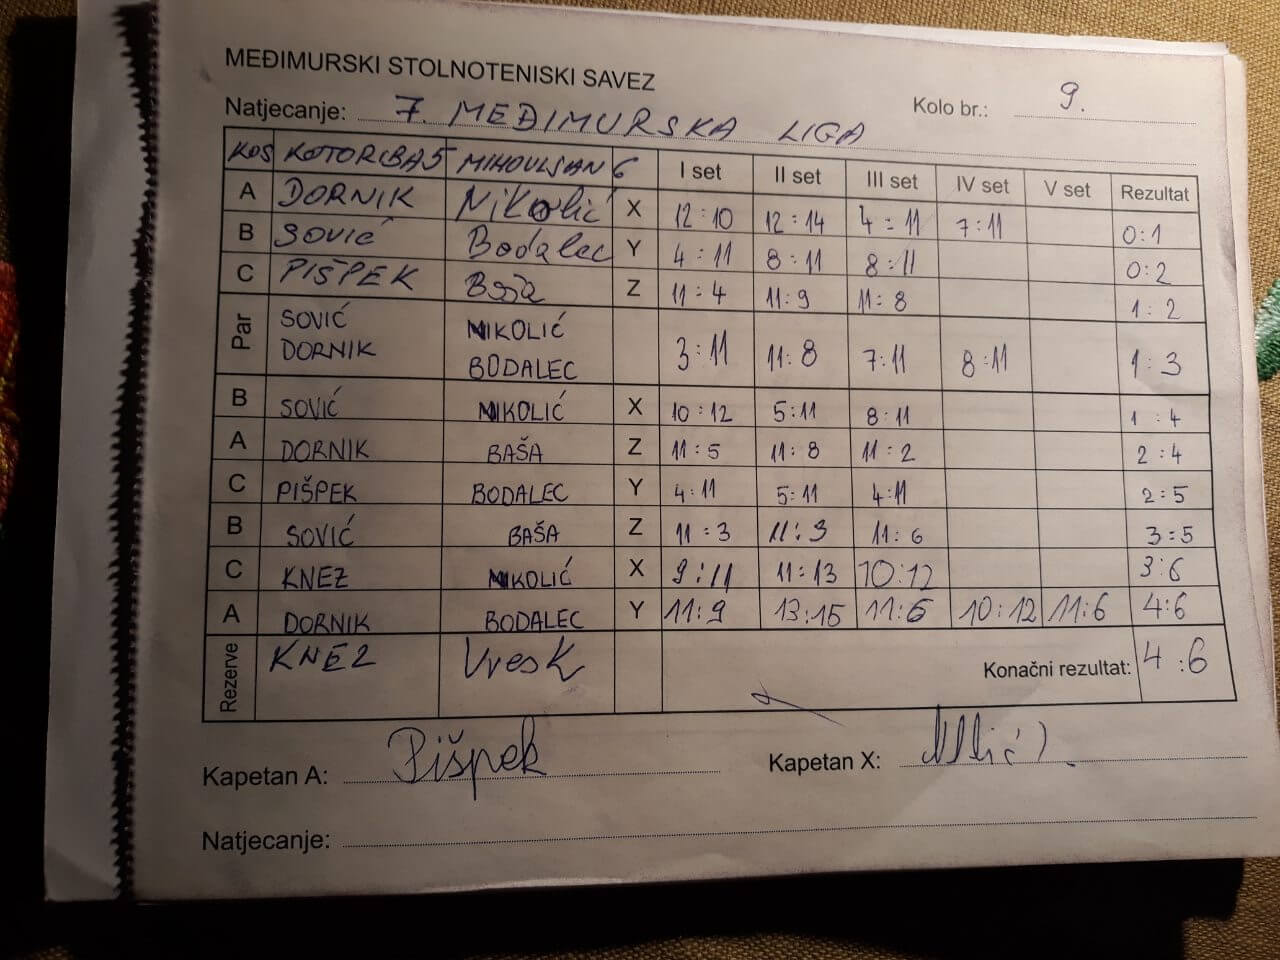 MEĐIMURSKI STOLNOTENISKI SAVEZ
Natjecanje: 7. MEĐIMURSKA LIGA Kolo br.: 9.
KOS KOTORIBA 5 MIHOVLJAN 6 I set II set III set IV set V set Rezultat
A DORNIK Nikolić X 12:10 12:14 4:11 7:11 0:1
B SOVIĆ Bodalec Y 4:11 8:11 8:11 0:2
C PIŠPEK Baša Z 11:4 11:9 11:8 1:2
Par SOVIĆ DORNIK NIKOLIĆ BODALEC 3:11 11:8 7:11 8:11 1:3
B SOVIĆ NIKOLIĆ X 10:12 5:11 8:11 1:4
A DORNIK BAŠA Z 11:5 11:8 11:2 2:4
C PIŠPEK BODALEC Y 4:11 5:11 4:11 2:5
B SOVIĆ BAŠA Z 11:3 11:3 11:6 3:5
C KNEZ NIKOLIĆ X 9:11 11:13 10:12 3:6
A DORNIK BODALEC Y 11:9 13:15 11:6 10:12 11:6 4:6
Rezerve KNEZ Vresk Konačni rezultat: 4:6
Kapetan A: Pišpek Kapetan X:
Natjecanje: